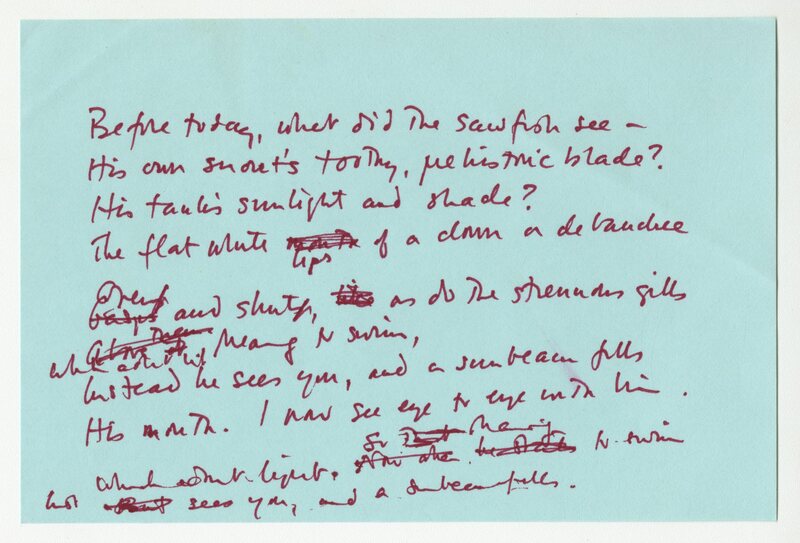 Before today, what did the sawfish see —
His own snout's toothy, prehistoric blade?
His tank's sunlight and shade?
The flat white mouth lips of a clown or debauchee
Opens gasps and shuts, like as do the strenuous gills
above them
which admit light, Meaning to swim,
Instead he sees you, and a sunbeam fills
His mouth. I now see eye to eye with him.
which admit light. So Meaning to swim
but sees you, and a sunbeam fills.